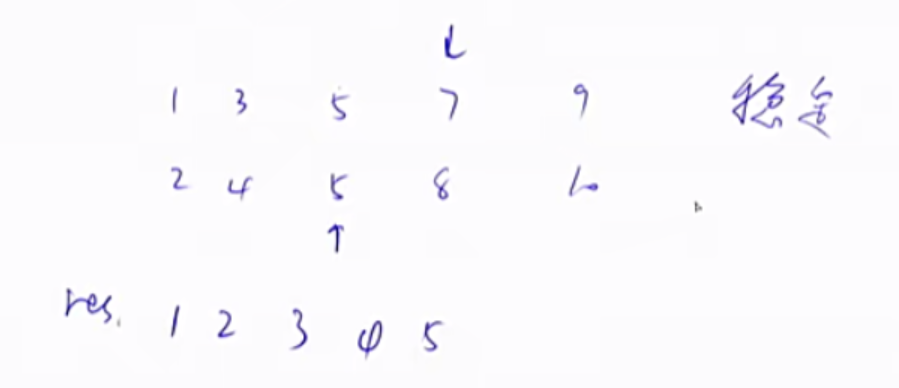 ↓
1 3 5 7 9 稳定
2 4 5 8 10
↑
res. 1 2 3 4 5